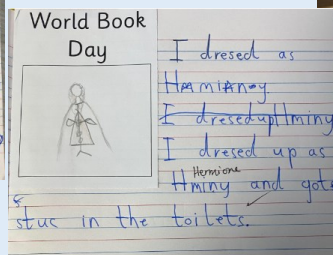 World Book
Day
I dresed as
HAMIANy.
I dresedupHminy
I dresed up as
Hermione
Hminy and got
stuc in the toilets.